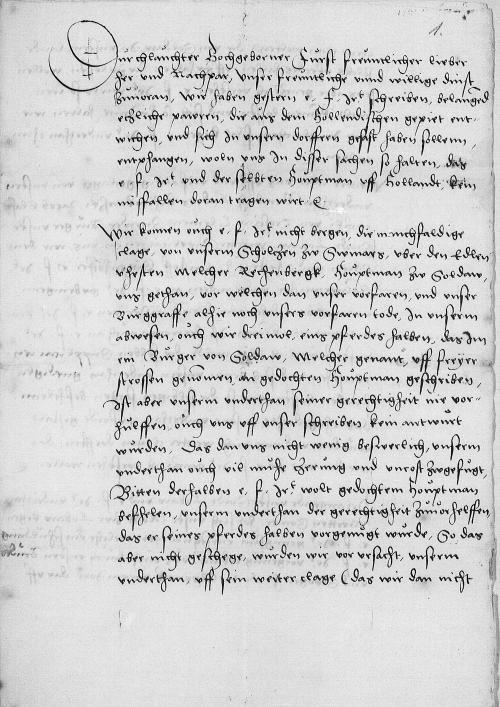 1.
Durchlauchter Hochgeborner Furst freuntlicher lieber
Her und Nachpar, Unser freuntliche unnd willige dinst
zuuoran, Wir haben gestern e. f. Irt schreiben, belanged
etzliche pawren, die aus dem Hollendischen gepiet ent-
wichen, und sich In unsern dorffern gesast haben sollenn,
entphangen, woln uns In disser sachen so halten, das
e. f. Irt und der selbten Hauptman uff Hollandt, kein
misfallen doran tragen wirt
Wir konnen ouch e. f. Irt nicht bergen, die manchfaldige
clage, von unserm Scholtzen zw, uber den Edlen
vhesten Melcher Rechenbergk, Hauptman zw Soldaw,
uns gethan, vor welchen dan unser vorfaren, und unser
Burggraffe alhie noch unsers vorfaren tode, In unserm
abwesen, ouch wir dreimol, eins pferdes halben, das Im
ein Burger von Soldaw, Melcher genant, uff freyer
strossen genommen, an gedochten Hauptman geschriben,
Ist aber unserm underthan seiner gerechtigheit nie vor-
hulffen, ouch uns uff unser schreiben, kein antwurt
wurden, Das dan uns nicht wenig beswerlich, unserm
underthan ouch vil muhe zerung und unrost zugefugt,
Bitten derhalben e. f. Irt wolt gedochtem Hauptman
befhelen, unserm underthan der gerechtigheit zuuorhelffen,
das er seines pferdes halben vorgenugt wurde, So das
aber nicht geschege, wurden wir vorursacht, unserm
underthan, uff sein weiter clage (das wir dan nicht